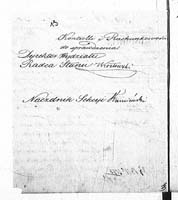 Kontrolli i Rachunkowości
do sprawdzenia
Dyrektor Wydziału
Radca Stanu
Naczelnik Sekcyi Kamiński